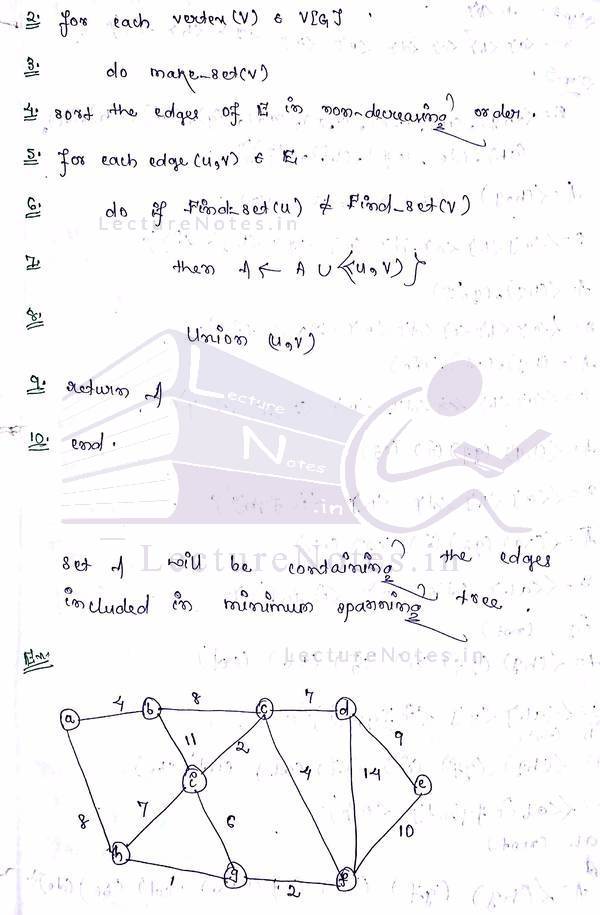 2. for each vertex (V) ∈ V[G]
3. do make_set(V)
4. sort the edges of E in non-decreasing order.
5. for each edge (u,v) ∈ E.
6. do if Find_set(u) ≠ Find_set(V)
LectureNotes.in
7. then A ← A ∪ {(u,v)}
8. Union (u,v)
9. return A
10. end.
Lecture
Notes
.in
set A will be containing the edges
LectureNotes.in
included in minimum spanning tree.
LectureNotes.in
Ex
4 8 7
a b c d
11 2 9
i 4 14 e
8 7 6 10
h g f
1 2